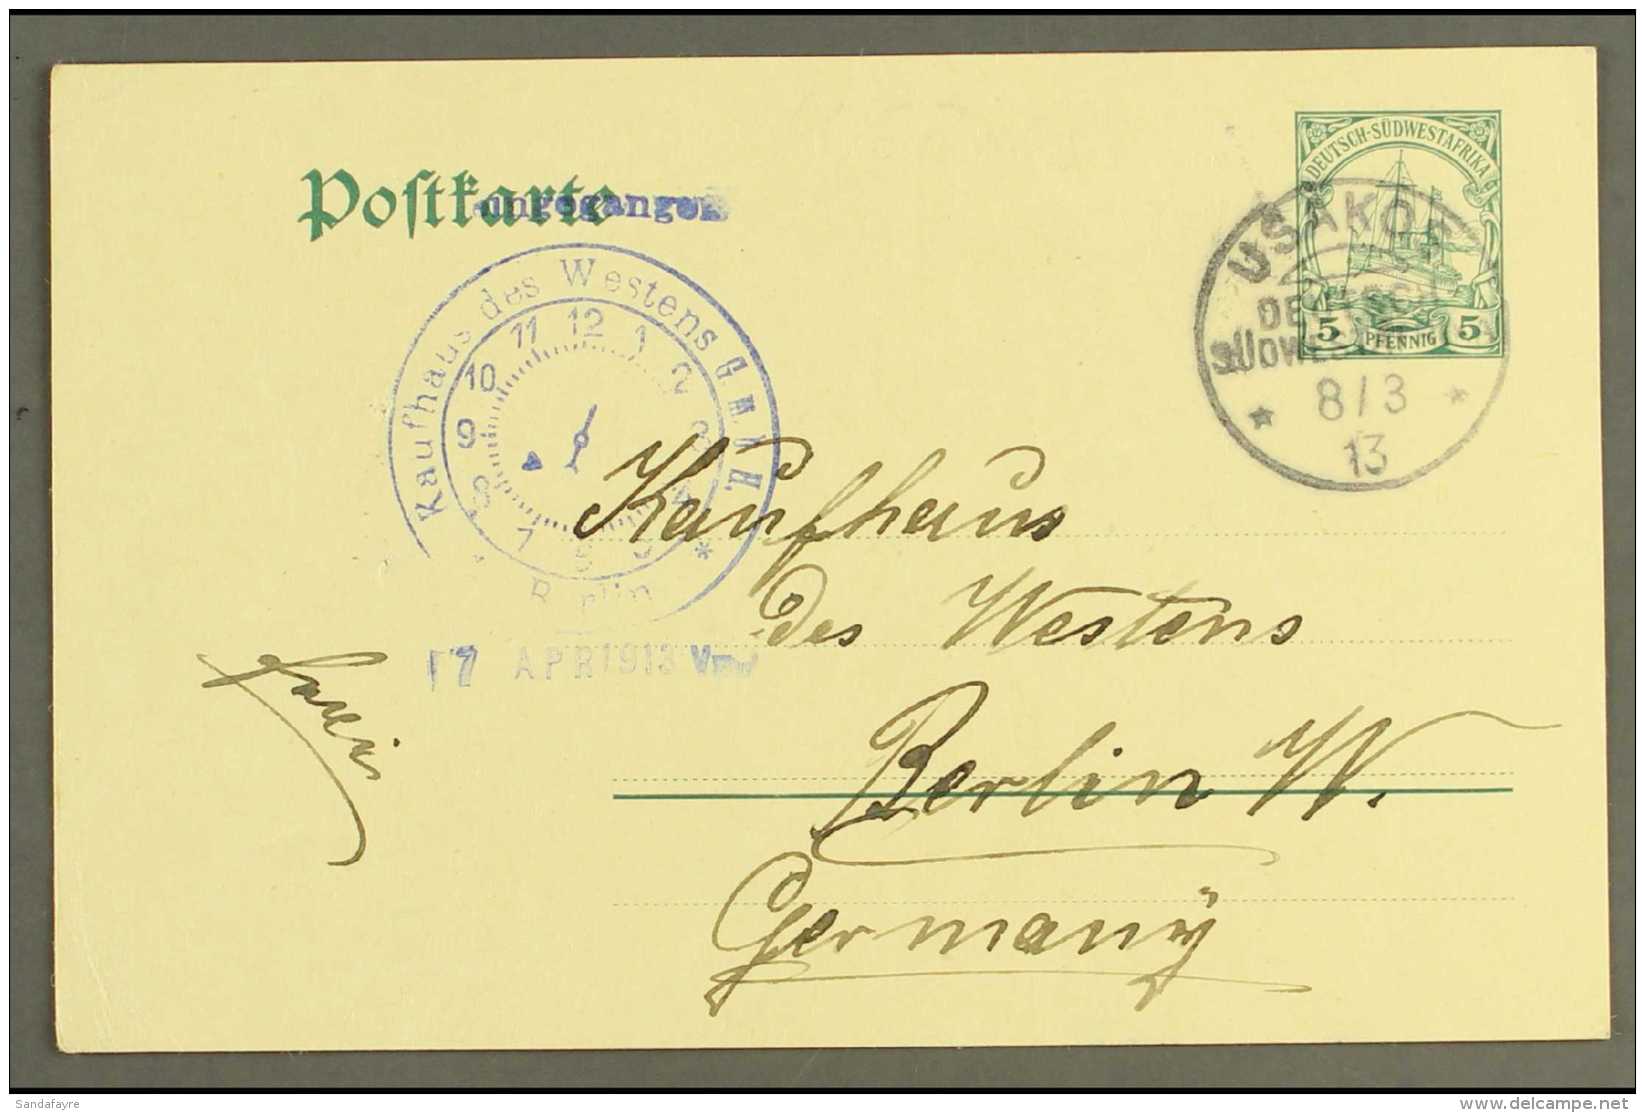 DEUTSCH-SÜDWESTAFRIKA
5 PFENNIG 5
Postkarte
eingegangen
USAKOS
8/3
13
Kaufhaus des Westens G.m.b.H.
* Berlin *
12
1
2
3
4
5
6
7
8
9
10
11
17 APR 1913 Vm
Kaufhaus
des Westens
Berlin W.
Germany
Sandafayre
delcampe.net